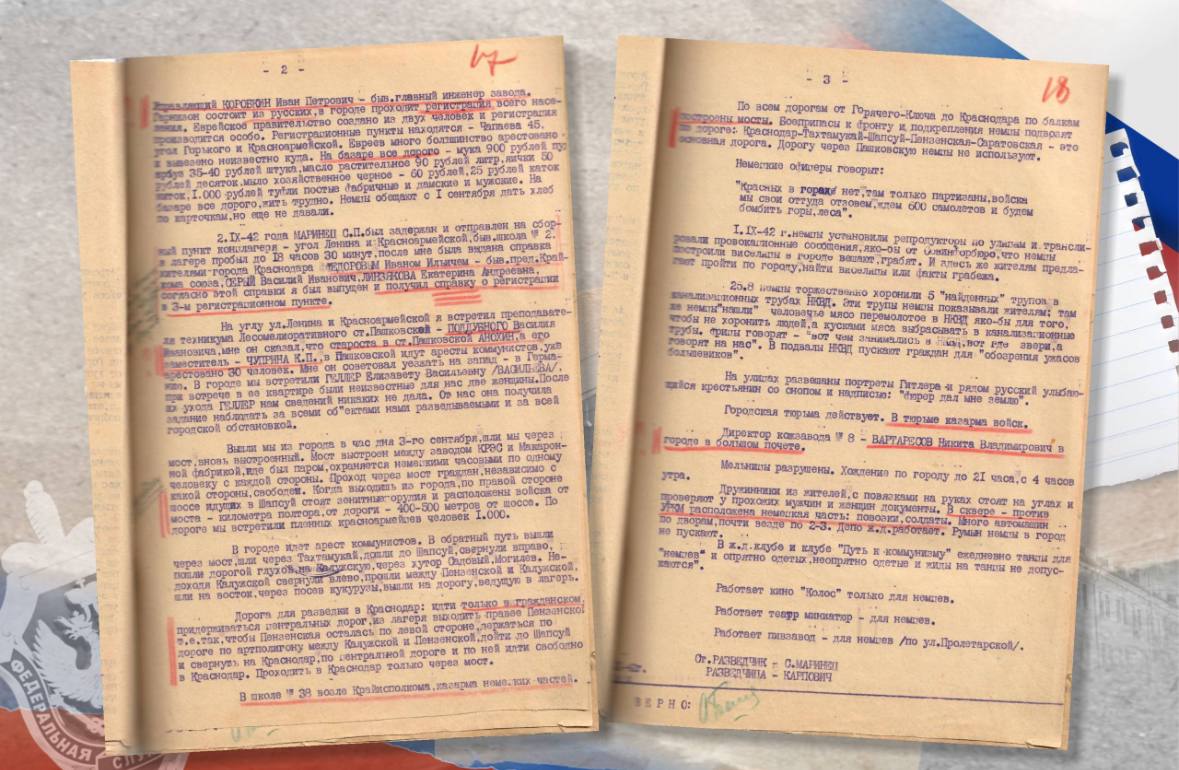 - 2 -
17
Управляющий КОРОБКИН Иван Петрович - быв.главный инженер завода.
Гарнизон состоит из русских,в городе проходит регистрация всего насе-
ления. Еврейское правительство создано из двух человек и регистрация
производится особо. Регистрационные пункты находятся - Чапаева 45,
угол Горького и Красноармейской. Евреев много большинство арестовано
и вывезено неизвестно куда. На базаре все дорого - мука 900 рублей
арбуз 35-40 рублей штука,масло растительное 90 рублей литр,яички 50
рублей десяток,мыло хозяйственное черное - 60 рублей,25 рублей каток
ниток,1.000 рублей туфли постые фабричные и дамские и мужские. На
базаре все дорого,жить трудно. Немцы обещают с 1 сентября дать хлеб
по карточкам,но еще не давали.
2.IX-42 года МАРИНЕЦ С.П.был задержан и отправлен на сбор-
ный пункт концлагеря - угол Ленина и Красноармейской,быв.школа № 2.
в лагере пробыл до 18 часов 30 минут,после мне была выдана справка
жителями города Краснодара ФЕДОРОВЫМ Иваном Ильичем - быв.пред.Край-
кома союза,СЕРЫЙ Василий Иванович, Екатерина Андреевна,
согласно этой справки я был выпущен и получил справку о регистрации
в 3-м регистрационном пункте.
На углу ул.Ленина и Красноармейской я встретил преподавате-
ля техникума Лесомелиоративного ст.Пашковской - ПОДДУБНОГО Василия
Ивановича,мне он сказал,что староста в ст.Пашковской АНОХИН,а его
заместитель - ЧИТРИНА К.П.,в Пашковской идут аресты коммунистов,уже
арестовано 30 человек. Мне он советовал уезжать на запад - в Герма-
нию. В городе мы встретили ГЕЛЛЕР Елизавету Васильевну /ВАСИЛЬЕВА/.
при встрече в ее квартире были неизвестные для нас две женщины.После
их ухода ГЕЛЛЕР нам сведений никаких не дала. От нас она получила
задание наблюдать за всеми об"ектами нами разведываемыми и за всей
городской обстановкой.
Вышли мы из города в час дня 3-го сентября,шли мы через
мост,вновь выстроенный. Мост выстроен между заводом КРЭС и Макарон-
ной фабрикой,где был паром,охраняется немецкими часовыми по одному
человеку с каждой стороны. Проход через мост граждан,независимо с
какой стороны,свободен. Когда выходишь из города,по правой стороне
шоссе идущих в Шапсуй стоят зенитные орудия и расположены войска от
моста - километра полтора,от дороги - 400-500 метров от шоссе. По
дороге мы встретили пленных красноармейцев человек 1.000.
В городе идет арест коммунистов. В обратный путь вышли
через мост,шли через Тахтамукай,дошли до Шапсуй,свернули вправо,
пошли дорогой глухой,на Калужскую,через хутор Садовый,Могилев. Не-
доходя Калужской свернули влево,прошли между Пензенской и Калужской,
шли на восток,через посев кукурузы,вышли на дорогу,ведущую в лагерь.
Дорога для разведки в Краснодар: идти только в гражданском,
придерживаться центральных дорог,из лагеря выходить правее Пензенской
т.е.так,чтобы Пензенская осталась по левой стороне,держаться по
дороге по артполигону между Калужской и Пензенской,дойти до Шапсуй
и свернуть на Краснодар,по центральной дороге и по ней идти свободно
в Краснодар. Проходить в Краснодар только через мост.
В школе № 38 возле Крайисполкома,казарма немецких частей.
- 3 -
18
По всем дорогам от Горячего-Ключа до Краснодара по балкам
построены мосты. Боеприпасы к фронту и подкрепления немцы подвозят
по дороге: Краснодар-Тахтамукай-Шапсуй-Пензенская-Саратовская - это
основная дорога. Дорогу через Пашковскую немцы не используют.
Немецкие офицеры говорят:
"Красных в городе нет,там только партизаны,войска
мы свои оттуда отзовем,ждем 600 самолетов и будем
бомбить горы,леса".
1.IX-42 г.немцы установили репродукторы по улицам и трансли-
ровали провокационные сообщения,яко-бы от Совинформбюро,что немцы
построили виселицы в городе вешают,грабят. И здесь же жителям предла-
гают пройти по городу,найти виселицы или факты грабежа.
25.8 немцы торжественно хоронили 5 "найденных" трупов в
канализационных трубах НКВД. Эти трупы немцы показывали жителям: там
же немцы"нашли" человечье мясо перемолотое в НКВД яко-бы для того,
чтобы не хоронить людей,а кусками мяса выбрасывать в канализационные
трубы. Фрицы говорят - "вот чем занимались в НКВД,вот где звери,а
говорят на нас". В подвалы НКВД пускают граждан для "обозрения ужасов
большевиков".
На улицах развешаны портреты Гитлера и рядом русский улыбаю-
щийся крестьянин со снопом и надписью: "Фюрер дал мне землю".
Городская тюрьма действует. В тюрьме казарма войск.
Директор кожзавода № 8 - ВАРТАРЕСОВ Никита Владимирович в
городе в большом почете.
Мельницы разрушены. Хождение по городу до 21 часа,с 4 часов
утра.
Дружинники из жителей,с повязками на руках стоят на углах и
проверяют у прохожих мужчин и женщин документы. В сквере - против
УРКМ расположена немецкая часть: повозки,солдаты. Много автомашин
по дворам,почти везде по 2-3. Депо ж.д.работает. Румын немцы в город
не пускают.
В ж.д.клубе и клубе "Путь к коммунизму" ежедневно танцы для
"немцев" и опрятно одетых,неопрятно одетые и жиды на танцы не допус-
каются".
Работает кино "Колос" только для немцев.
Работает театр миниатюр - для немцев.
Работает пивзавод - для немцев /по ул.Пролетарской/.
Ст.РАЗВЕДЧИК - С.МАРИНЕЦ
РАЗВЕДЧИЦА - КАРПОВИЧ
ВЕРНО:
ФЕДЕРАЛЬНАЯ СЛУ